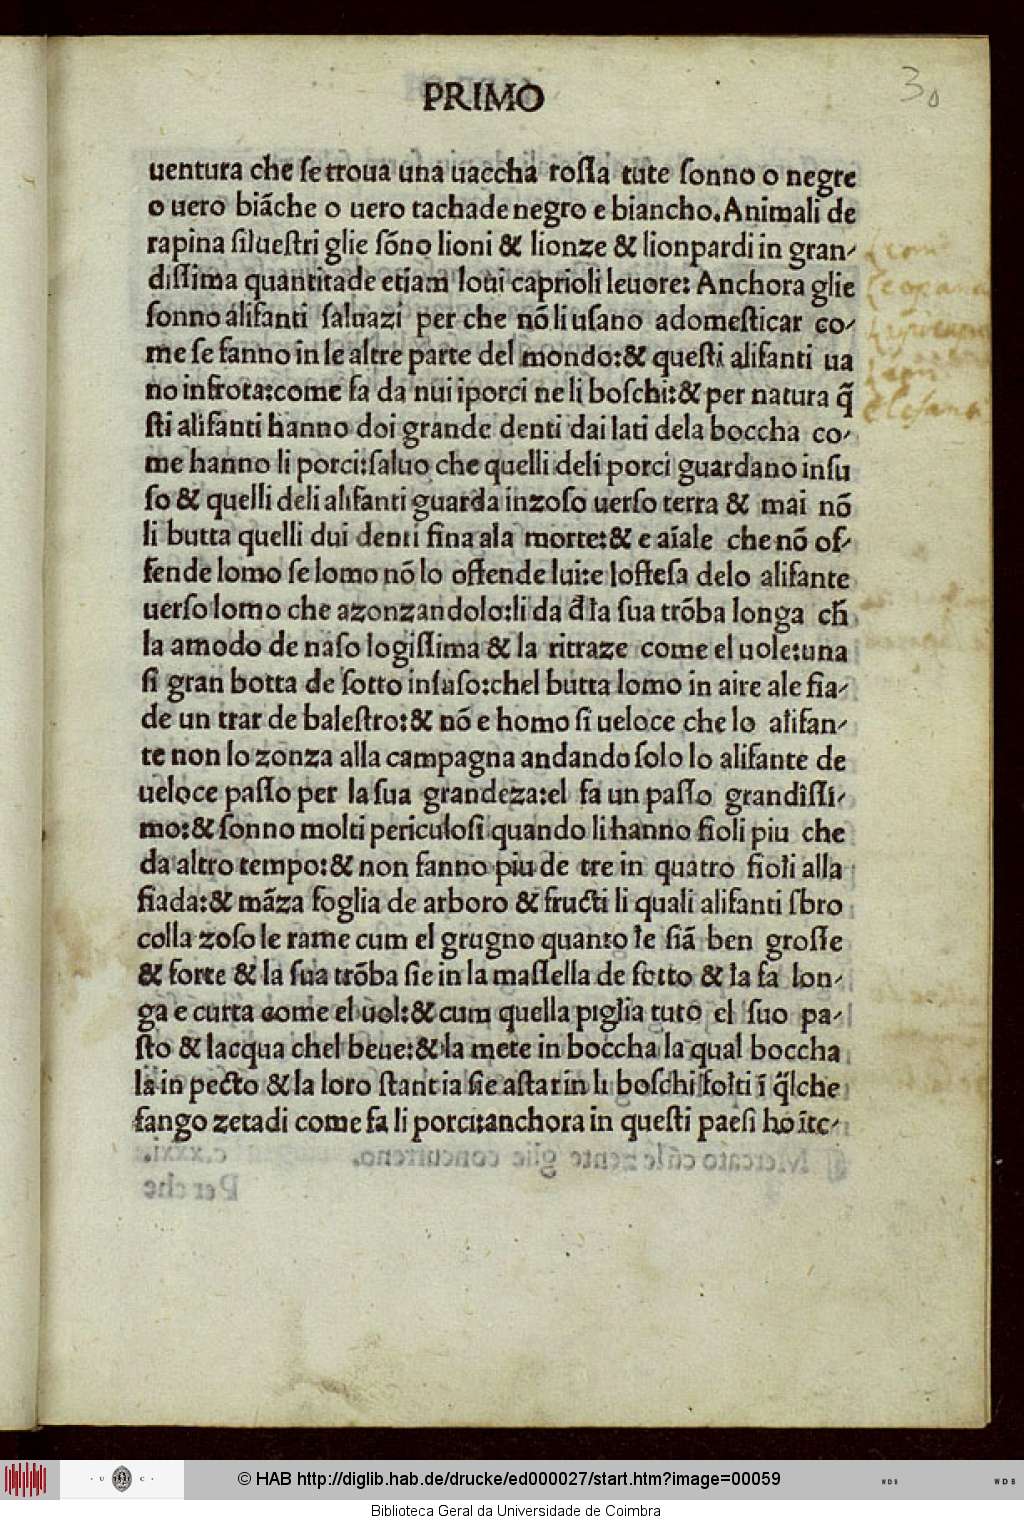 PRIMO
30
uentura che se troua una uaccha rossa tute sonno o negre
o uero biãche o uero tachade negro e biancho. Animali de
rapina siluestri glie sõno lioni & lionze & lionpardi in gran-
dissima quantitade etiam loui caprioli leuore: Anchora glie
sonno alifanti saluazi per che nõ li usano adomesticar co-
me se fanno in le altre parte del mondo:& questi alifanti ua
no in frota:come fa da nui iporci ne li boschi:& per natura q̃
sti alifanti hanno doi grande denti dai lati dela boccha co-
me hanno li porci:saluo che quelli deli porci guardano insu
so & quelli deli alifanti guarda inzoso uerso terra & mai nõ
li butta quelli dui denti fina ala morte:& e aĩale che nõ of-
fende lomo se lomo nõ lo offende lui:e loffesa delo alifante
uerso lomo che azonzandolo:li da đ la sua trõba longa cħ
la amodo de naso logissima & la ritraze come el uole:una
si gran botta de sotto insuso:chel butta lomo in aire ale fia-
de un trar de balestro:& nõ e homo si ueloce che lo alifan-
te non lo zonza alla campagna andando solo lo alifante de
ueloce passo per la sua grandeza:el fa un passo grandissi-
mo:& sonno molti periculosi quando li hanno fioli piu che
da altro tempo:& non fanno piu de tre in quatro fioli alla
fiada:& mãza foglia de arboro & fructi li quali alifanti sbro
colla zoso le rame cum el grugno quanto le siã ben grosse
& forte & la sua trõba sie in la massella de sotto & la fa lon-
ga e curta come el uol:& cum quella piglia tuto el suo pa-
sto & lacqua chel beue:& la mete in boccha la qual boccha
la in pecto & la loro stantia sie astar in li boschi folti ĩ q̃lche
fango zetadi come fa li porci:anchora in questi paesi ho ĩte-
© HAB http://diglib.hab.de/drucke/ed000027/start.htm?image=00059
Biblioteca Geral da Universidade de Coimbra